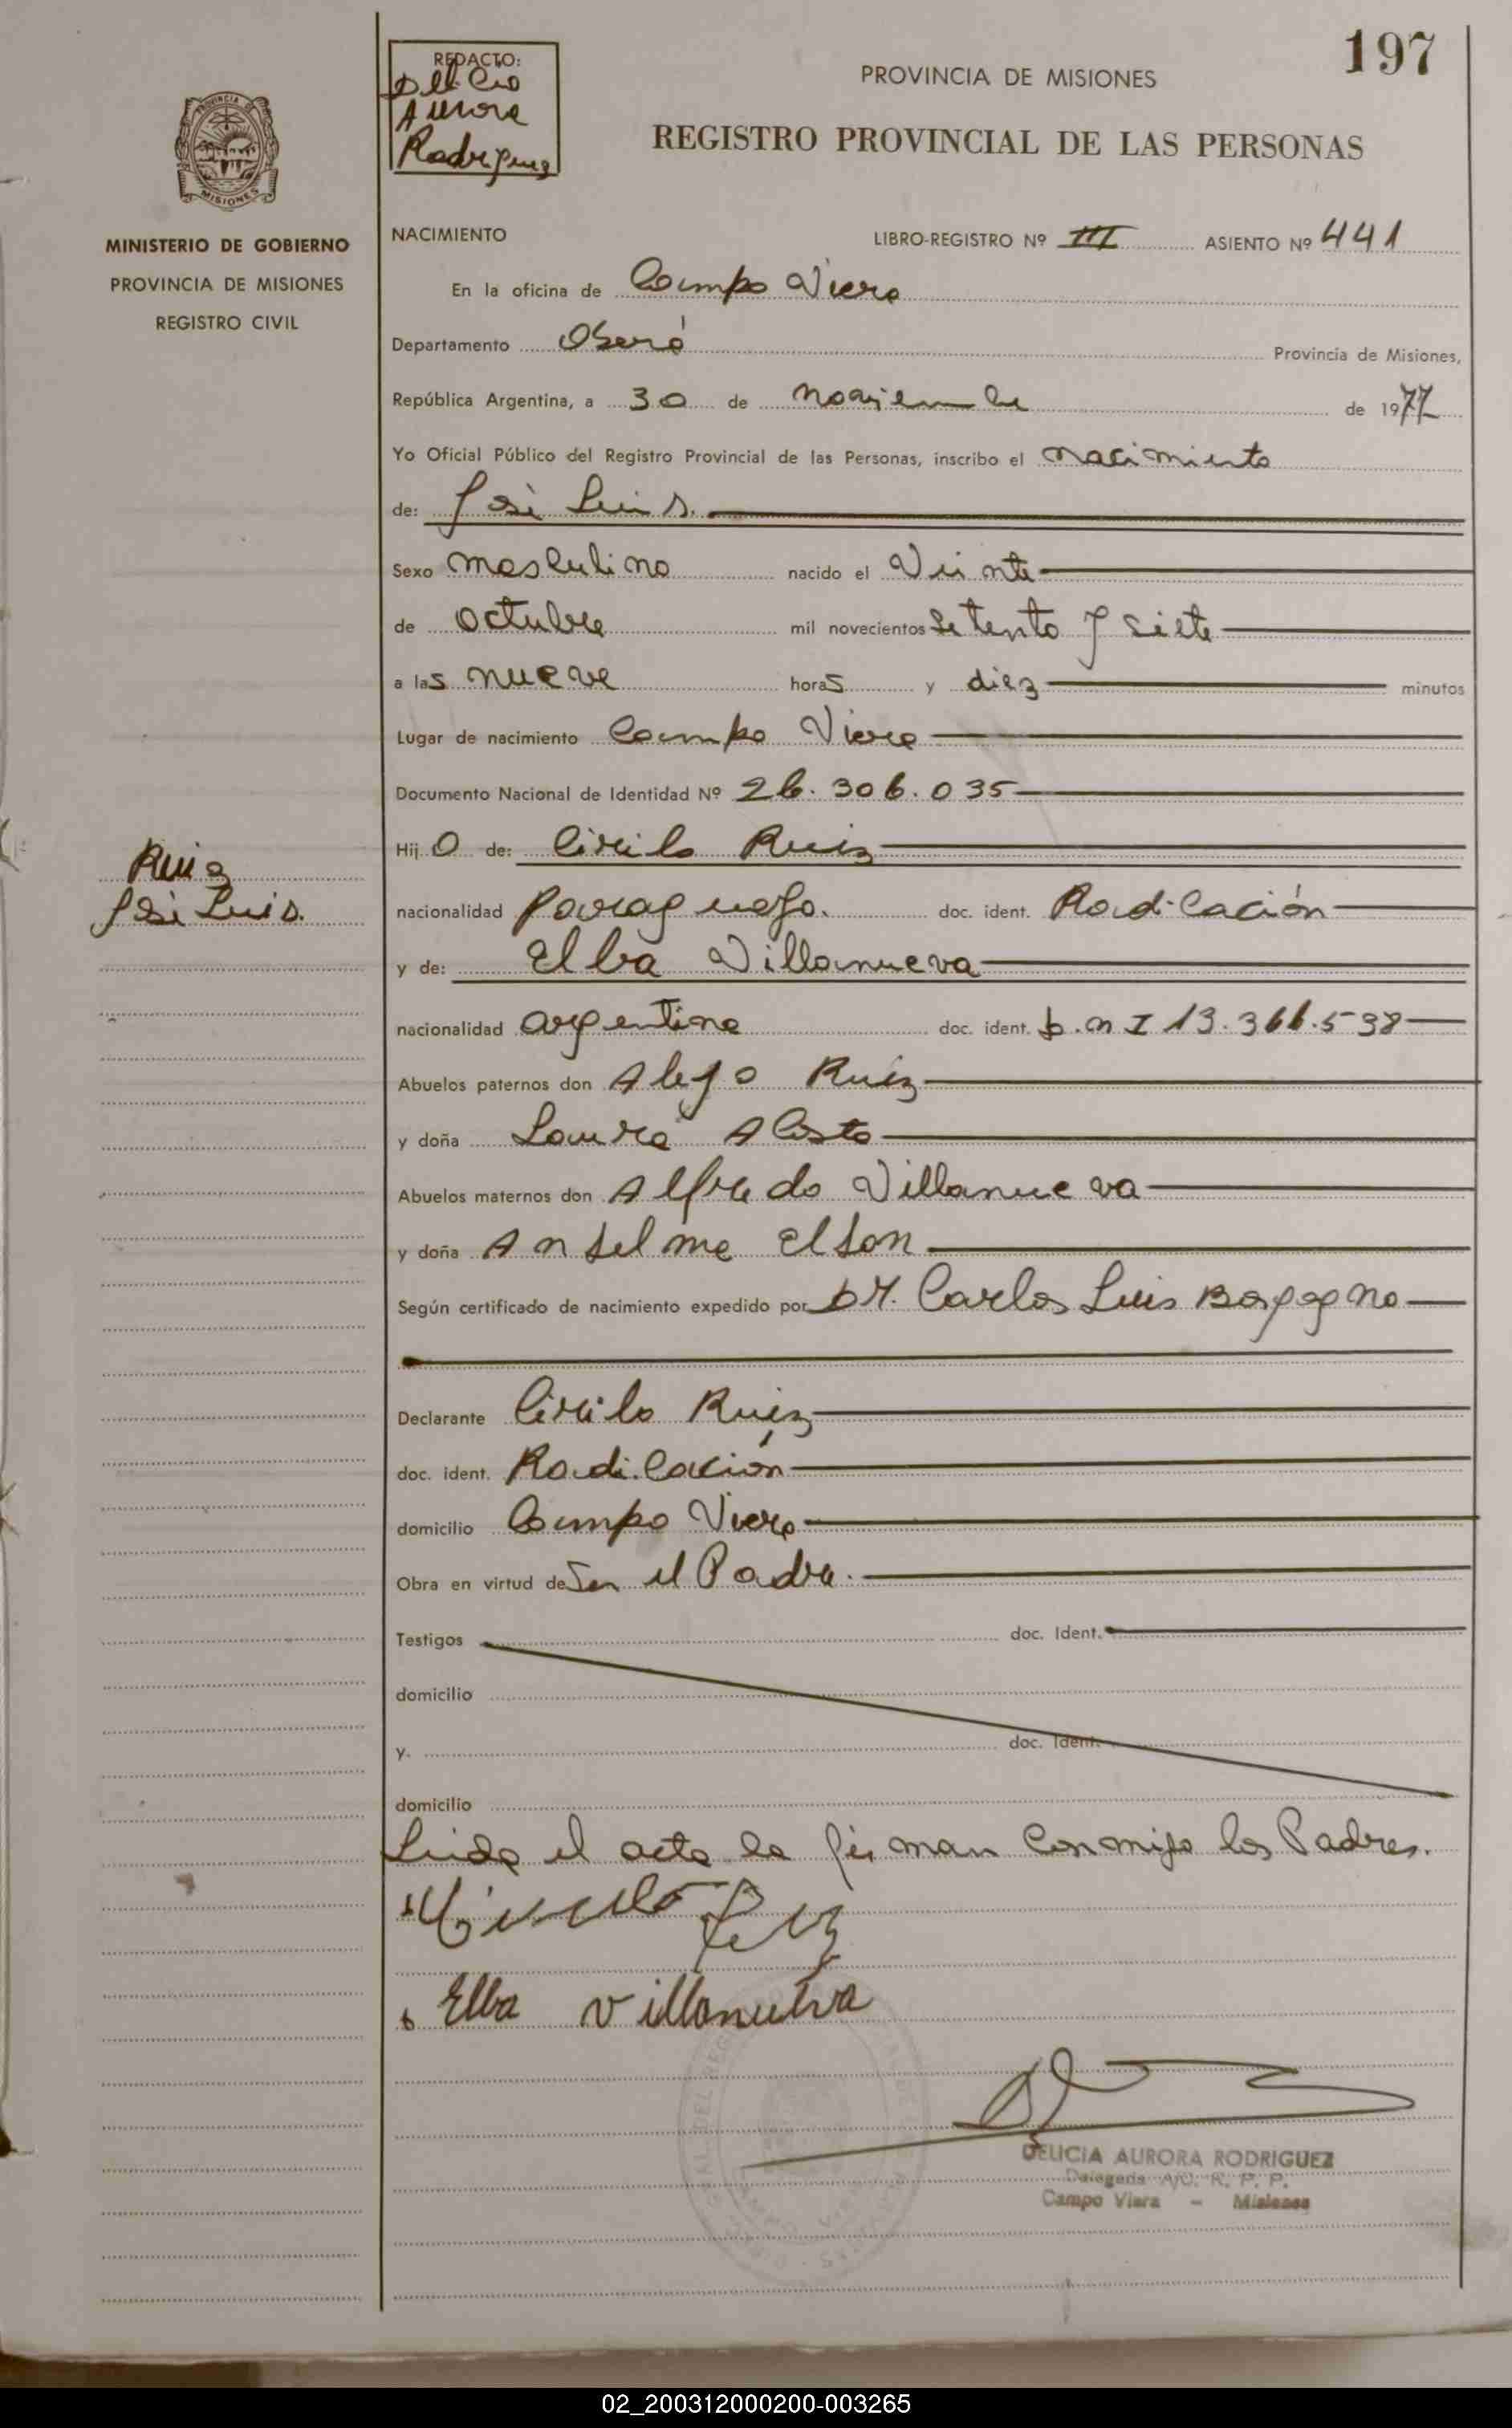 197
REDACTO:
Delicia
Aurora
Rodriguez
PROVINCIA DE MISIONES
REGISTRO PROVINCIAL DE LAS PERSONAS
PROVINCIA DE
MISIONES
MINISTERIO DE GOBIERNO
PROVINCIA DE MISIONES
REGISTRO CIVIL
NACIMIENTO LIBRO-REGISTRO Nº III ASIENTO Nº 441
En la oficina de Campo Viera
Departamento Oberá Provincia de Misiones,
República Argentina, a 30 de noviembre de 1977
Yo Oficial Público del Registro Provincial de las Personas, inscribo el nacimiento
de: José Luis.
Sexo masculino nacido el Veinte
de octubre mil novecientos setenta y siete
a las nueve horas y diez minutos
Lugar de nacimiento Campo Viera
Documento Nacional de Identidad Nº 26.306.035
Hijo de: Cirilo Ruiz
Ruiz
José Luis.
nacionalidad Paraguayo. doc. ident. Radicación
y de: Elba Villanueva
nacionalidad argentina doc. ident. D.N I 13.366.538
Abuelos paternos don Alejo Ruiz
y doña Laura
Abuelos maternos don Alfredo Villanueva
y doña Anselma
Según certificado de nacimiento expedido por Dr. Carlos Luis
Declarante Cirilo Ruiz
doc. ident. Radicación
domicilio Campo Viera
Obra en virtud de Ser el Padre.
Testigos doc. Ident.
domicilio
y. doc. Ident.
domicilio
Leida el acta la firman conmigo los Padres.
Elba Villanueva
DELICIA AURORA RODRIGUEZ
Delegada A/C. R. P. P.
Campo Viera - Misiones
02_200312000200-003265